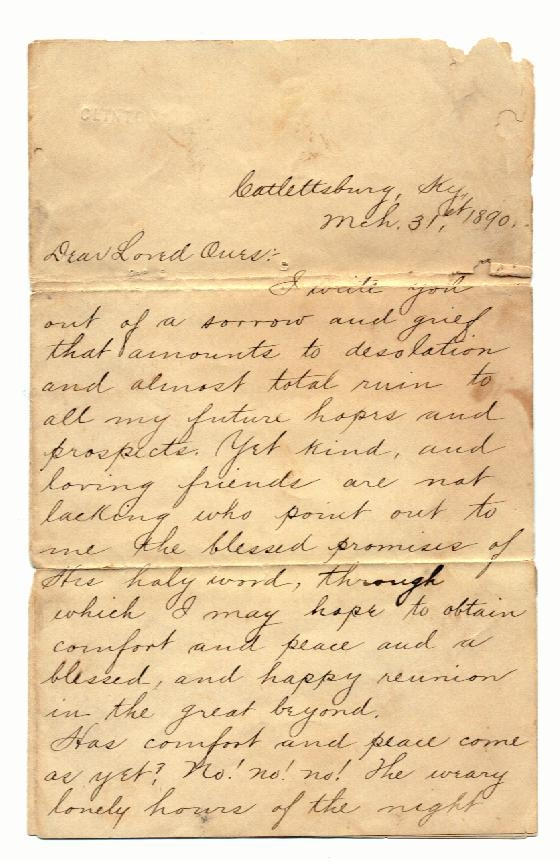 CLINTON
Catlettsburg, Ky,
Mch. 31,st 1890.
Dear Loved Ones:-
I write you
out of a sorrow and grief
that amounts to desolation
and almost total ruin to
all my future hopes and
prospects. Yet kind, and
loving friends are not
lacking who point out to
me the blessed promises of
His holy word, through
which I may hope to obtain
comfort and peace and a
blessed, and happy reunion
in the great beyond.
Has comfort and peace come
as yet? No! no! no! The weary
lonely hours of the night